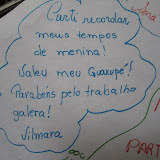 Curti recordar
meus tempos
de menina!
Valeu meu Guaxupé!
Parabéns pelo trabalho
galera!
Vilmara
Ana
PART